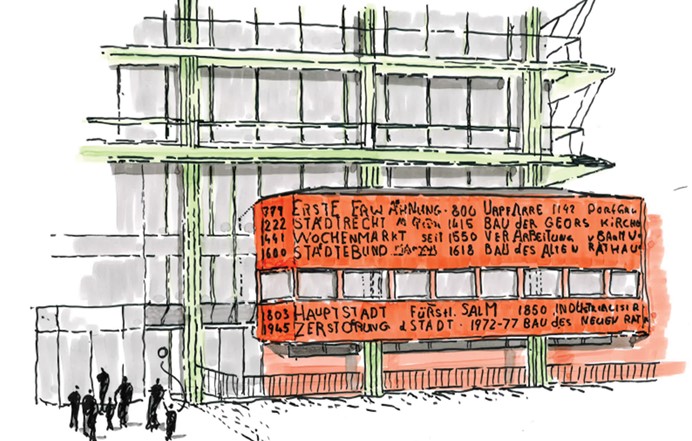 779 ERSTE ERWÄHNUNG · 800 URPFARRE 1142 DORFGRÜ
1222 STADTRECHT 1415 BAU DER GEORS KIRCHE
1441 WOCHENMARKT SEIT 1550 VERARBEITUNG v BAUMW
1600 STÄDTEBUND 1618 BAU DES ALTEN RATHAU
1803 HAUPTSTADT FÜRSTL. SALM 1850 INDUSTRIALISIER
1945 ZERSTÖRUNG d STADT · 1972-77 BAU DES NEUEN RATH